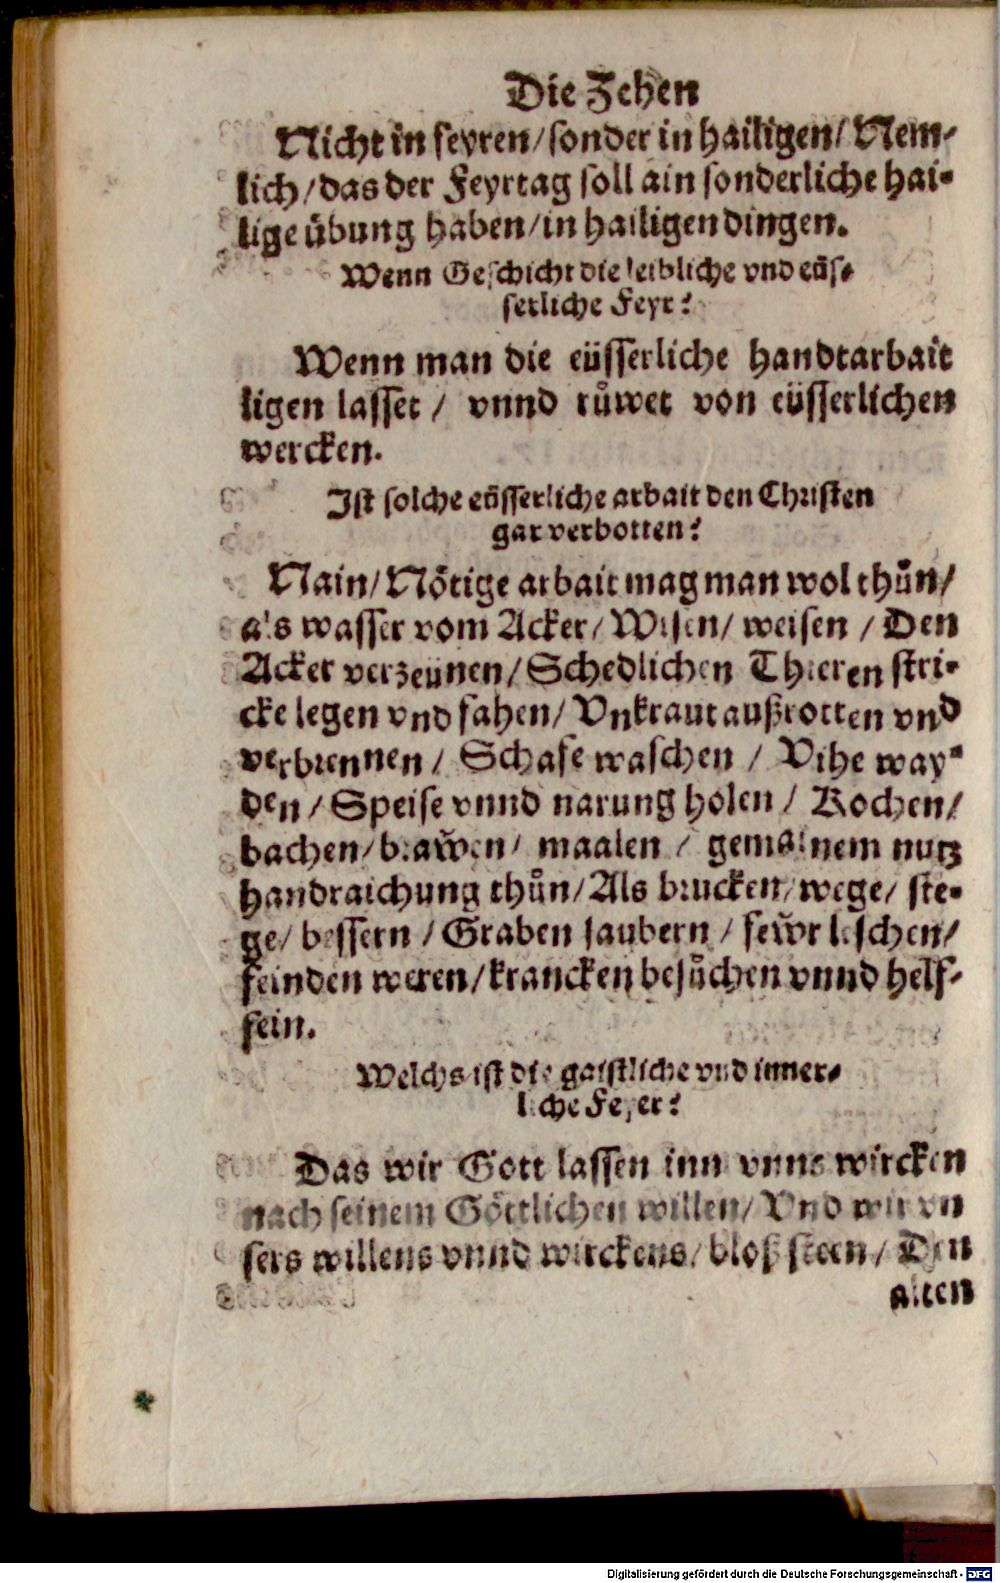 Die Zehen
Nicht in feyren/sonder in hailigen/Nem-
lich/das der Feyrtag soll ain sonderliche hai-
lige übung haben/in hailigen dingen.
Wenn Geschicht die leibliche vnd eüs-
serliche Feyr?
Wenn man die eüsserliche handtarbait
ligen lasset / vnnd růwet von eüsserlichen
wercken.
Ist solche eüsserliche arbait den Christen
gar verbotten?
Nain/Nötige arbait mag man wol thůn/
als wasser vom Acker/Wisen/ weisen / Den
Acker verzeünen/Schedlichen Thieren stri-
cke legen vnd fahen/Vnkraut außrotten vnd
verbrennen/ Schafe waschen / Vihe way-
den/Speise vnnd narung holen / Kochen/
bachen/brawen/ maalen / gemainem nutz
handraichung thůn/Als brucken/wege/ ste-
ge/ bessern / Graben saubern / fewr leschen/
feinden weren/krancken besůchen vnnd helf-
fein.
Welchs ist die gaistliche vnd inner-
liche Feyer?
Das wir Gott lassen inn vnns wircken
nach seinem Göttlichen willen/ Vnd wir vn
sers willens vnnd wirckens/ bloß steen/ Den
alten
Digitalisierung gefördert durch die Deutsche Forschungsgemeinschaft - DFG